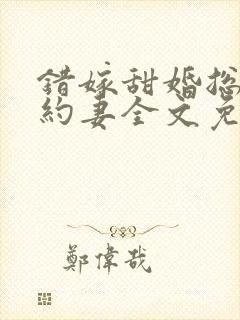 錯嫁甜婚總
約妻全文免
鄭偉哉